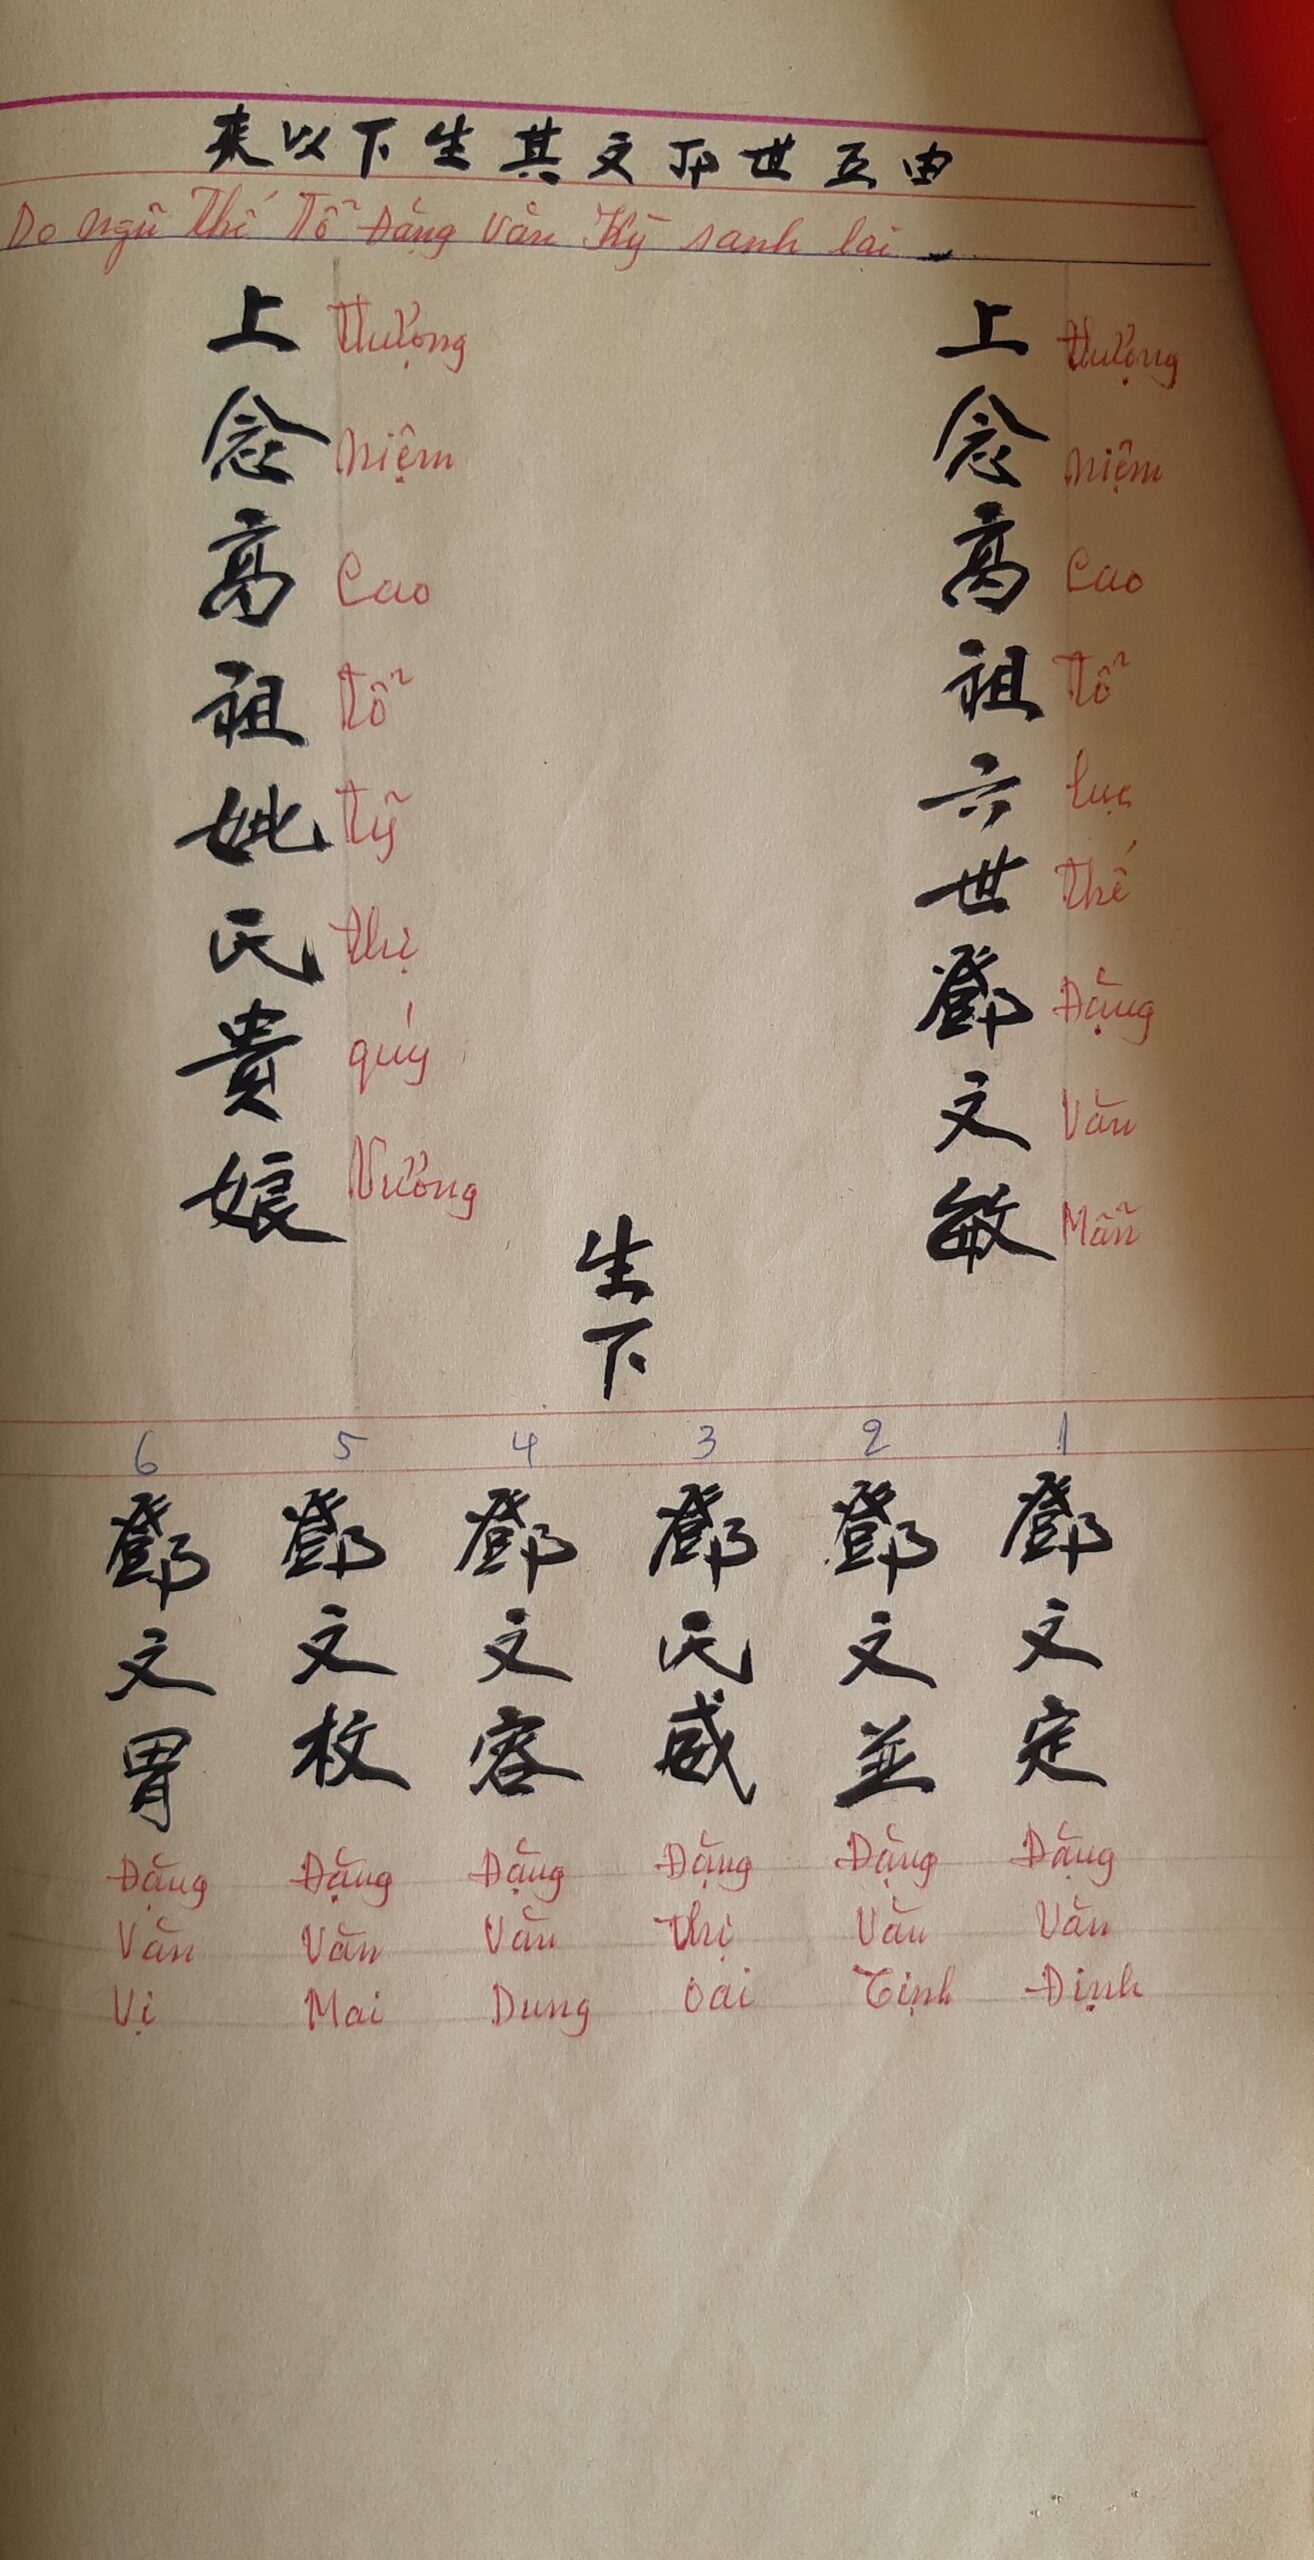 由五世文其生下以来
Do ngũ thế Tổ Đặng Văn Kỳ sanh lai
上念高祖六世鄧文敏
Thượng niệm Cao Tổ lục thế Đặng Văn Mẫn
上念高祖妣氏貴娘
Thượng niệm Cao Tổ Tỹ thị quý Nương
生下
1
鄧文定
Đặng Văn Định
2
鄧文並
Đặng Văn Tịnh
3
鄧氏威
Đặng Thị Oai
4
鄧文容
Đặng Văn Dung
5
鄧文枚
Đặng Văn Mai
6
鄧文胃
Đặng Văn Vị